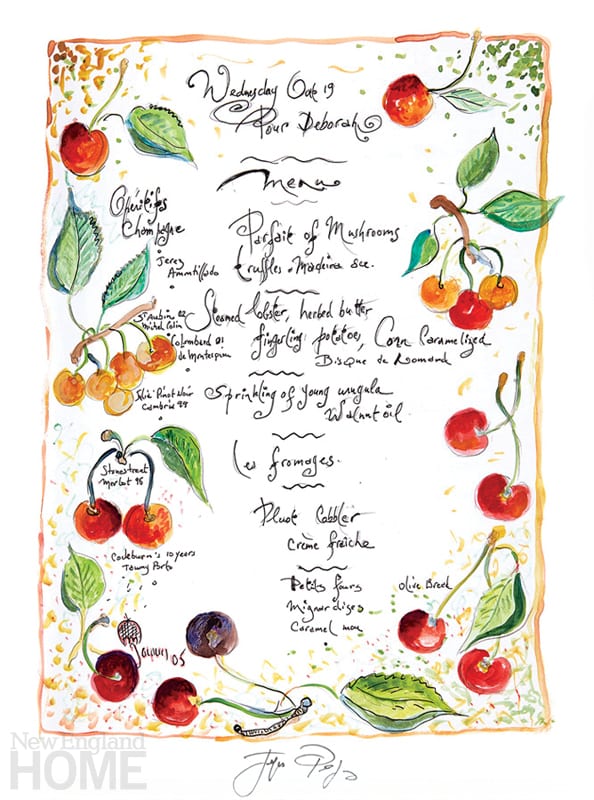 Wednesday Oct 19
Pour Deborah
Menu
Apéritifs
Champagne
Jerez
Amontillado
Parfait of Mushrooms
truffles Madeira sce.
St Aubin 02
Michel Colin
Colombard 01
de Montespan
Pinot Noir
Cambria 99
Steamed lobster, herbed butter
fingerling potatoes, Corn Caramelized
Bisque de Homard
Sprinkling of young arugula
Walnut oil
Les fromages.
Stonestreet
Merlot 96
Pluot Cobbler
Crème fraîche
Cockburn's 10 years
Tawny Porto
Petits fours
Mignardises
Caramel mou
Olive Bread
05
New England
HOME